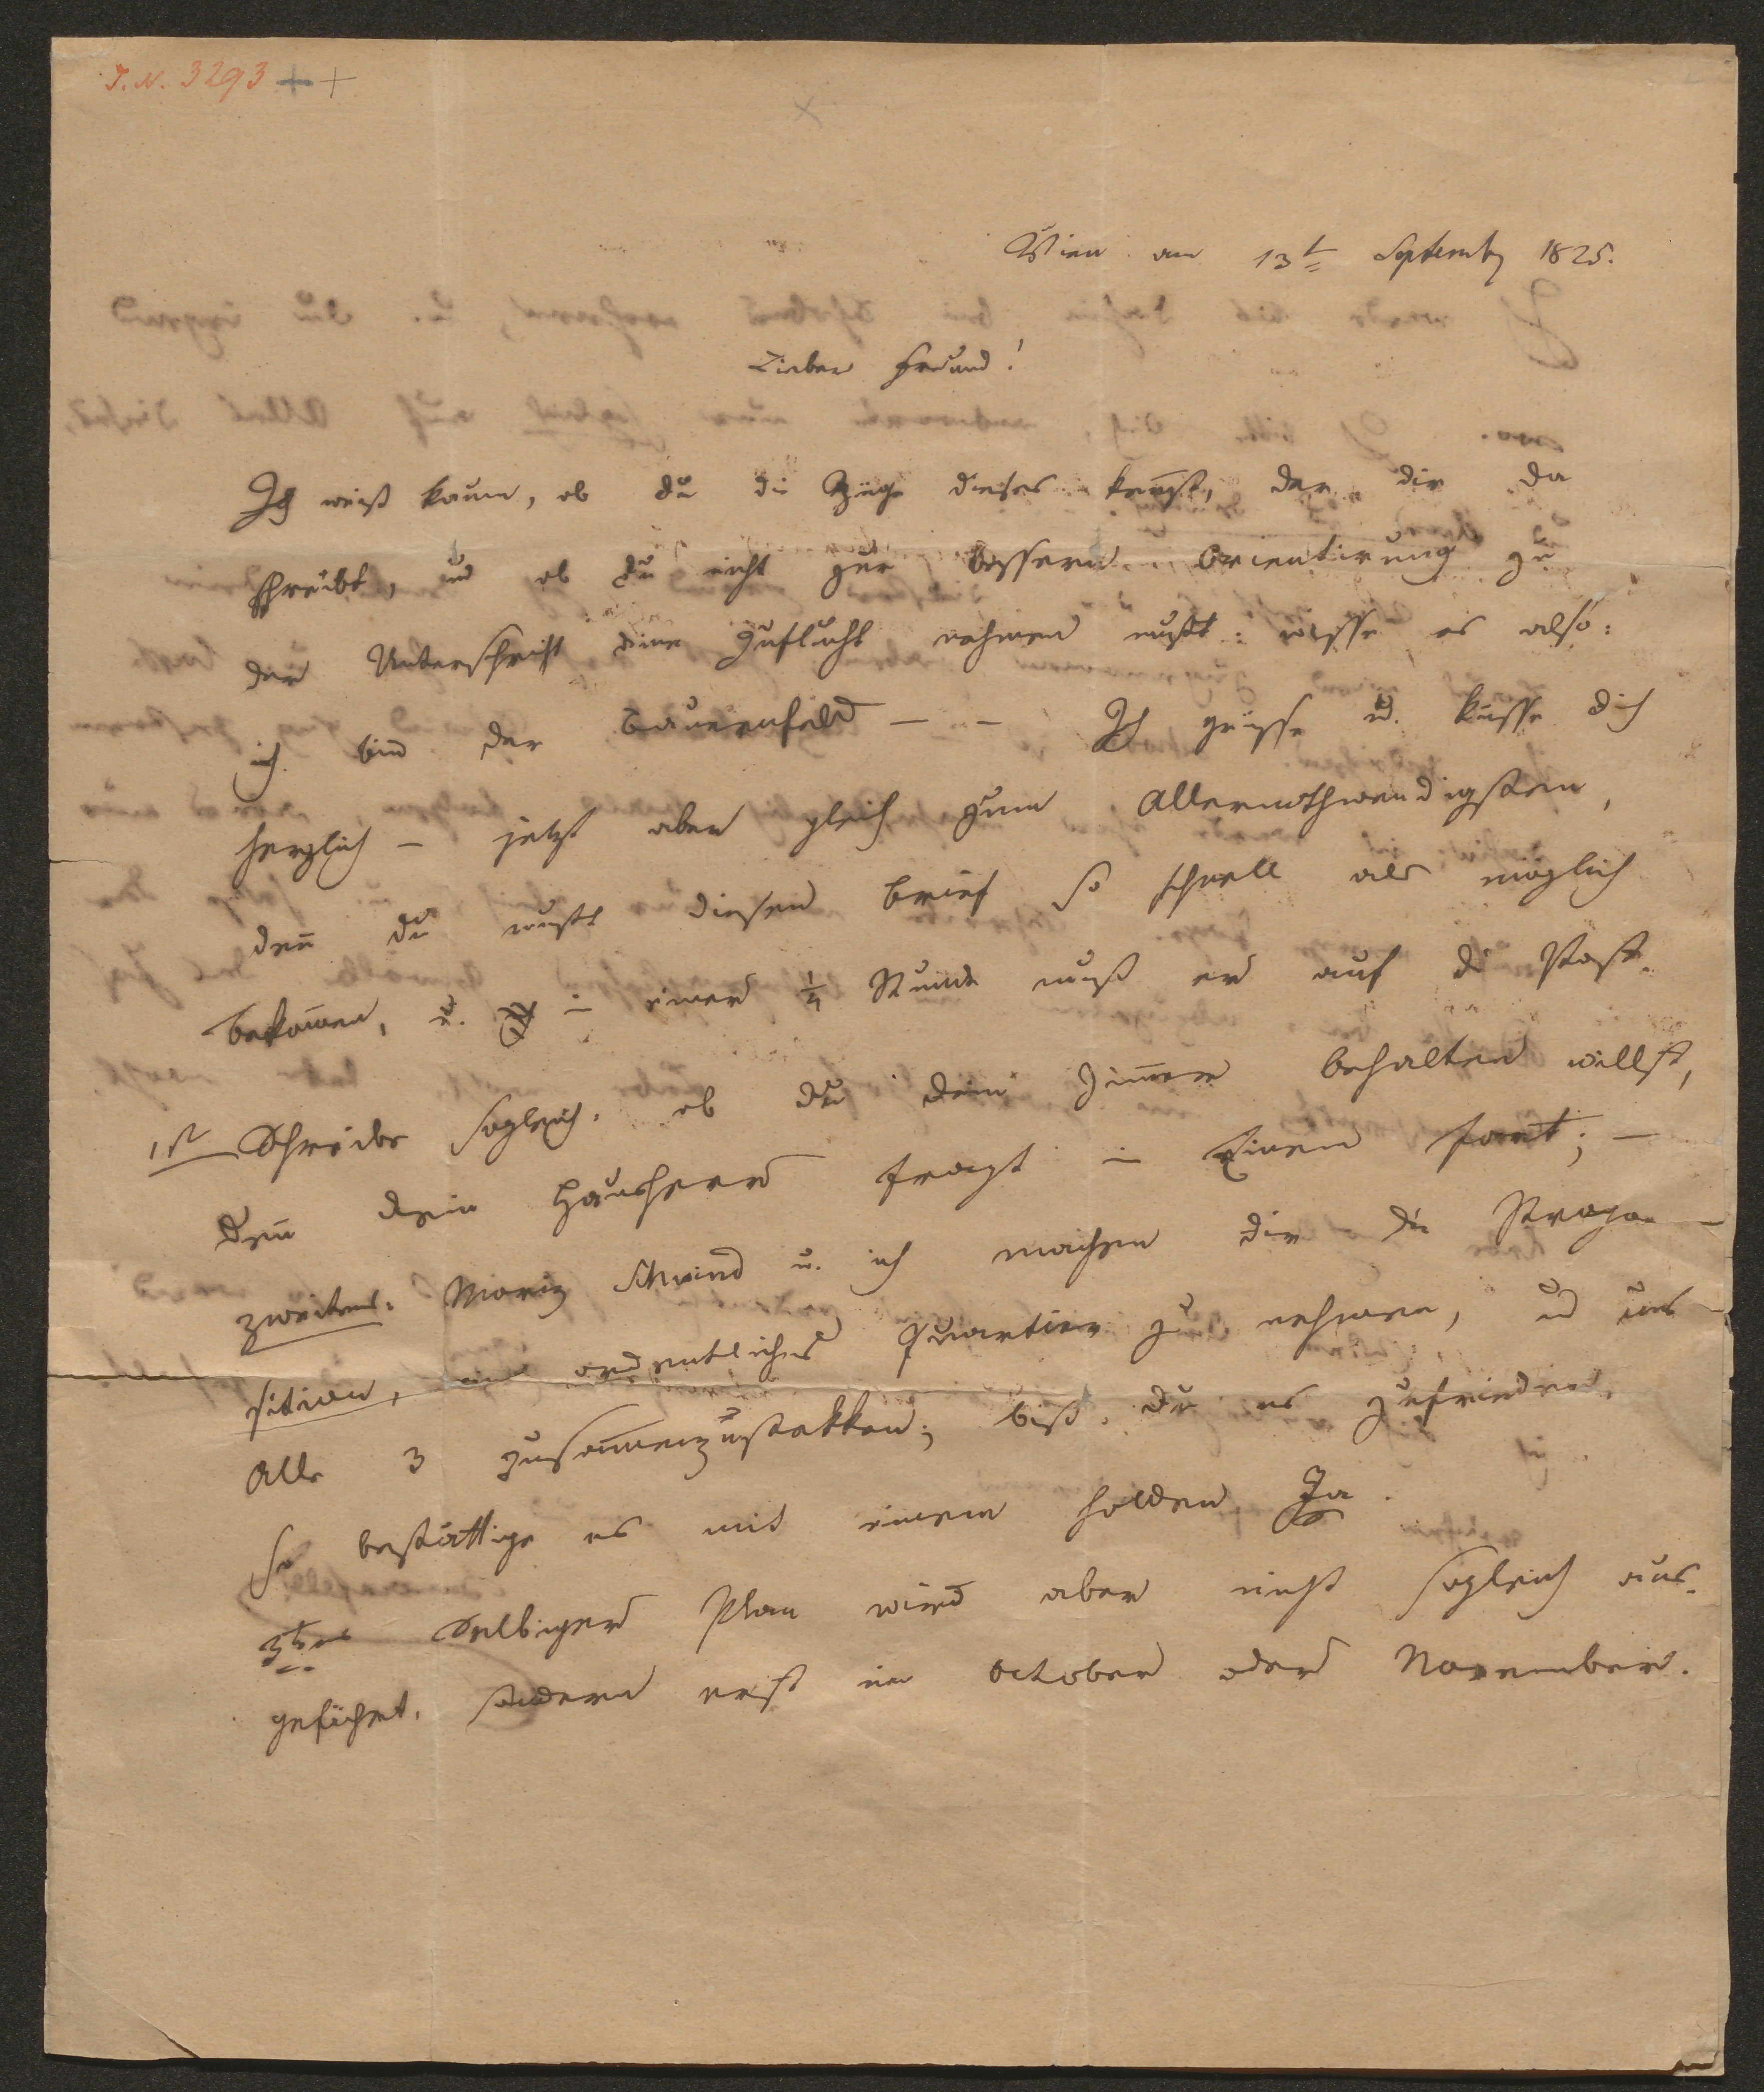 I. N. 3293 + +
Wien am 13t September 1825.
Lieber Freund!
Ich weiß kaum, ob du die Züge dieses kennst, der dir da
schreibt, und ob du nicht zur bessern Orientirung zu
der Unterschrift deine Zuflucht nehmen mußt: wisse es also:
ich bin der Bauernfeld — — Ich grüsse u. küsse dich
herzlich — jetzt aber gleich zum Allernothwendigsten,
den̅ du mußt diesen Brief so schnell als möglich
beko̅men, u. in einer ¼ Stunde muß er auf die Post.
1st Schreibe sogleich, ob du dein Zi̅mer behalten willst,
den̅ dein Hausherr fragt in Einem fort; —
zweitens: Moriz Schwind u. ich machen dir die Propo-
sition, ein ordentliches Quartier zu nehmen, und uns
Alle 3 zusa̅menzustekken; bist du es zufrieden,
so bestättige es mit einem holden Ja.
3tens Selbiger Plan wird aber nicht sogleich aus-
geführt, sondern erst im October oder November.